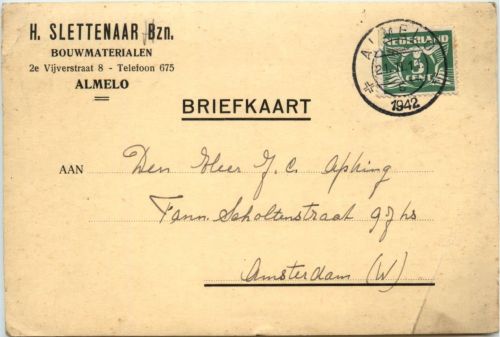 H. SLETTENAAR Bzn.
BOUWMATERIALEN
2e Vijverstraat 8 - Telefoon 675
ALMELO
ALMELO
1942
NEDERLAND
CENT
BRIEFKAART
AAN Den Heer J. C. Apking
Fann. Scholtenstraat 97 hs
Amsterdam (W)